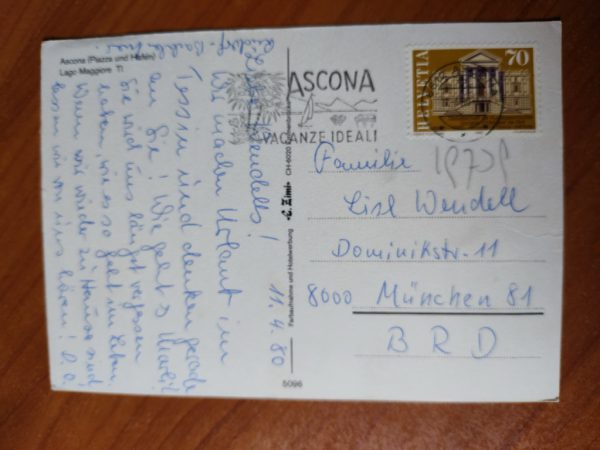 Ascona (Piazza und Hafen)
Lago Maggiore TI
11.4.80
Wendells!
Wir machen Urlaub im
Tessin und denken gerade
an Sie! Wie geht's
Sie wird uns längst vergessen
haben, wie es so geht im Leben.
Wenn wir wieder zu Hause sind
lassen wir von uns hören!
Farbaufnahme und Hotelwerbung CH-6020
5096
ASCONA
VACANZE IDEALI
HELVETIA
70
Familie
Lisl Wendell
Dominikstr. 11
8000 München 81
BRD